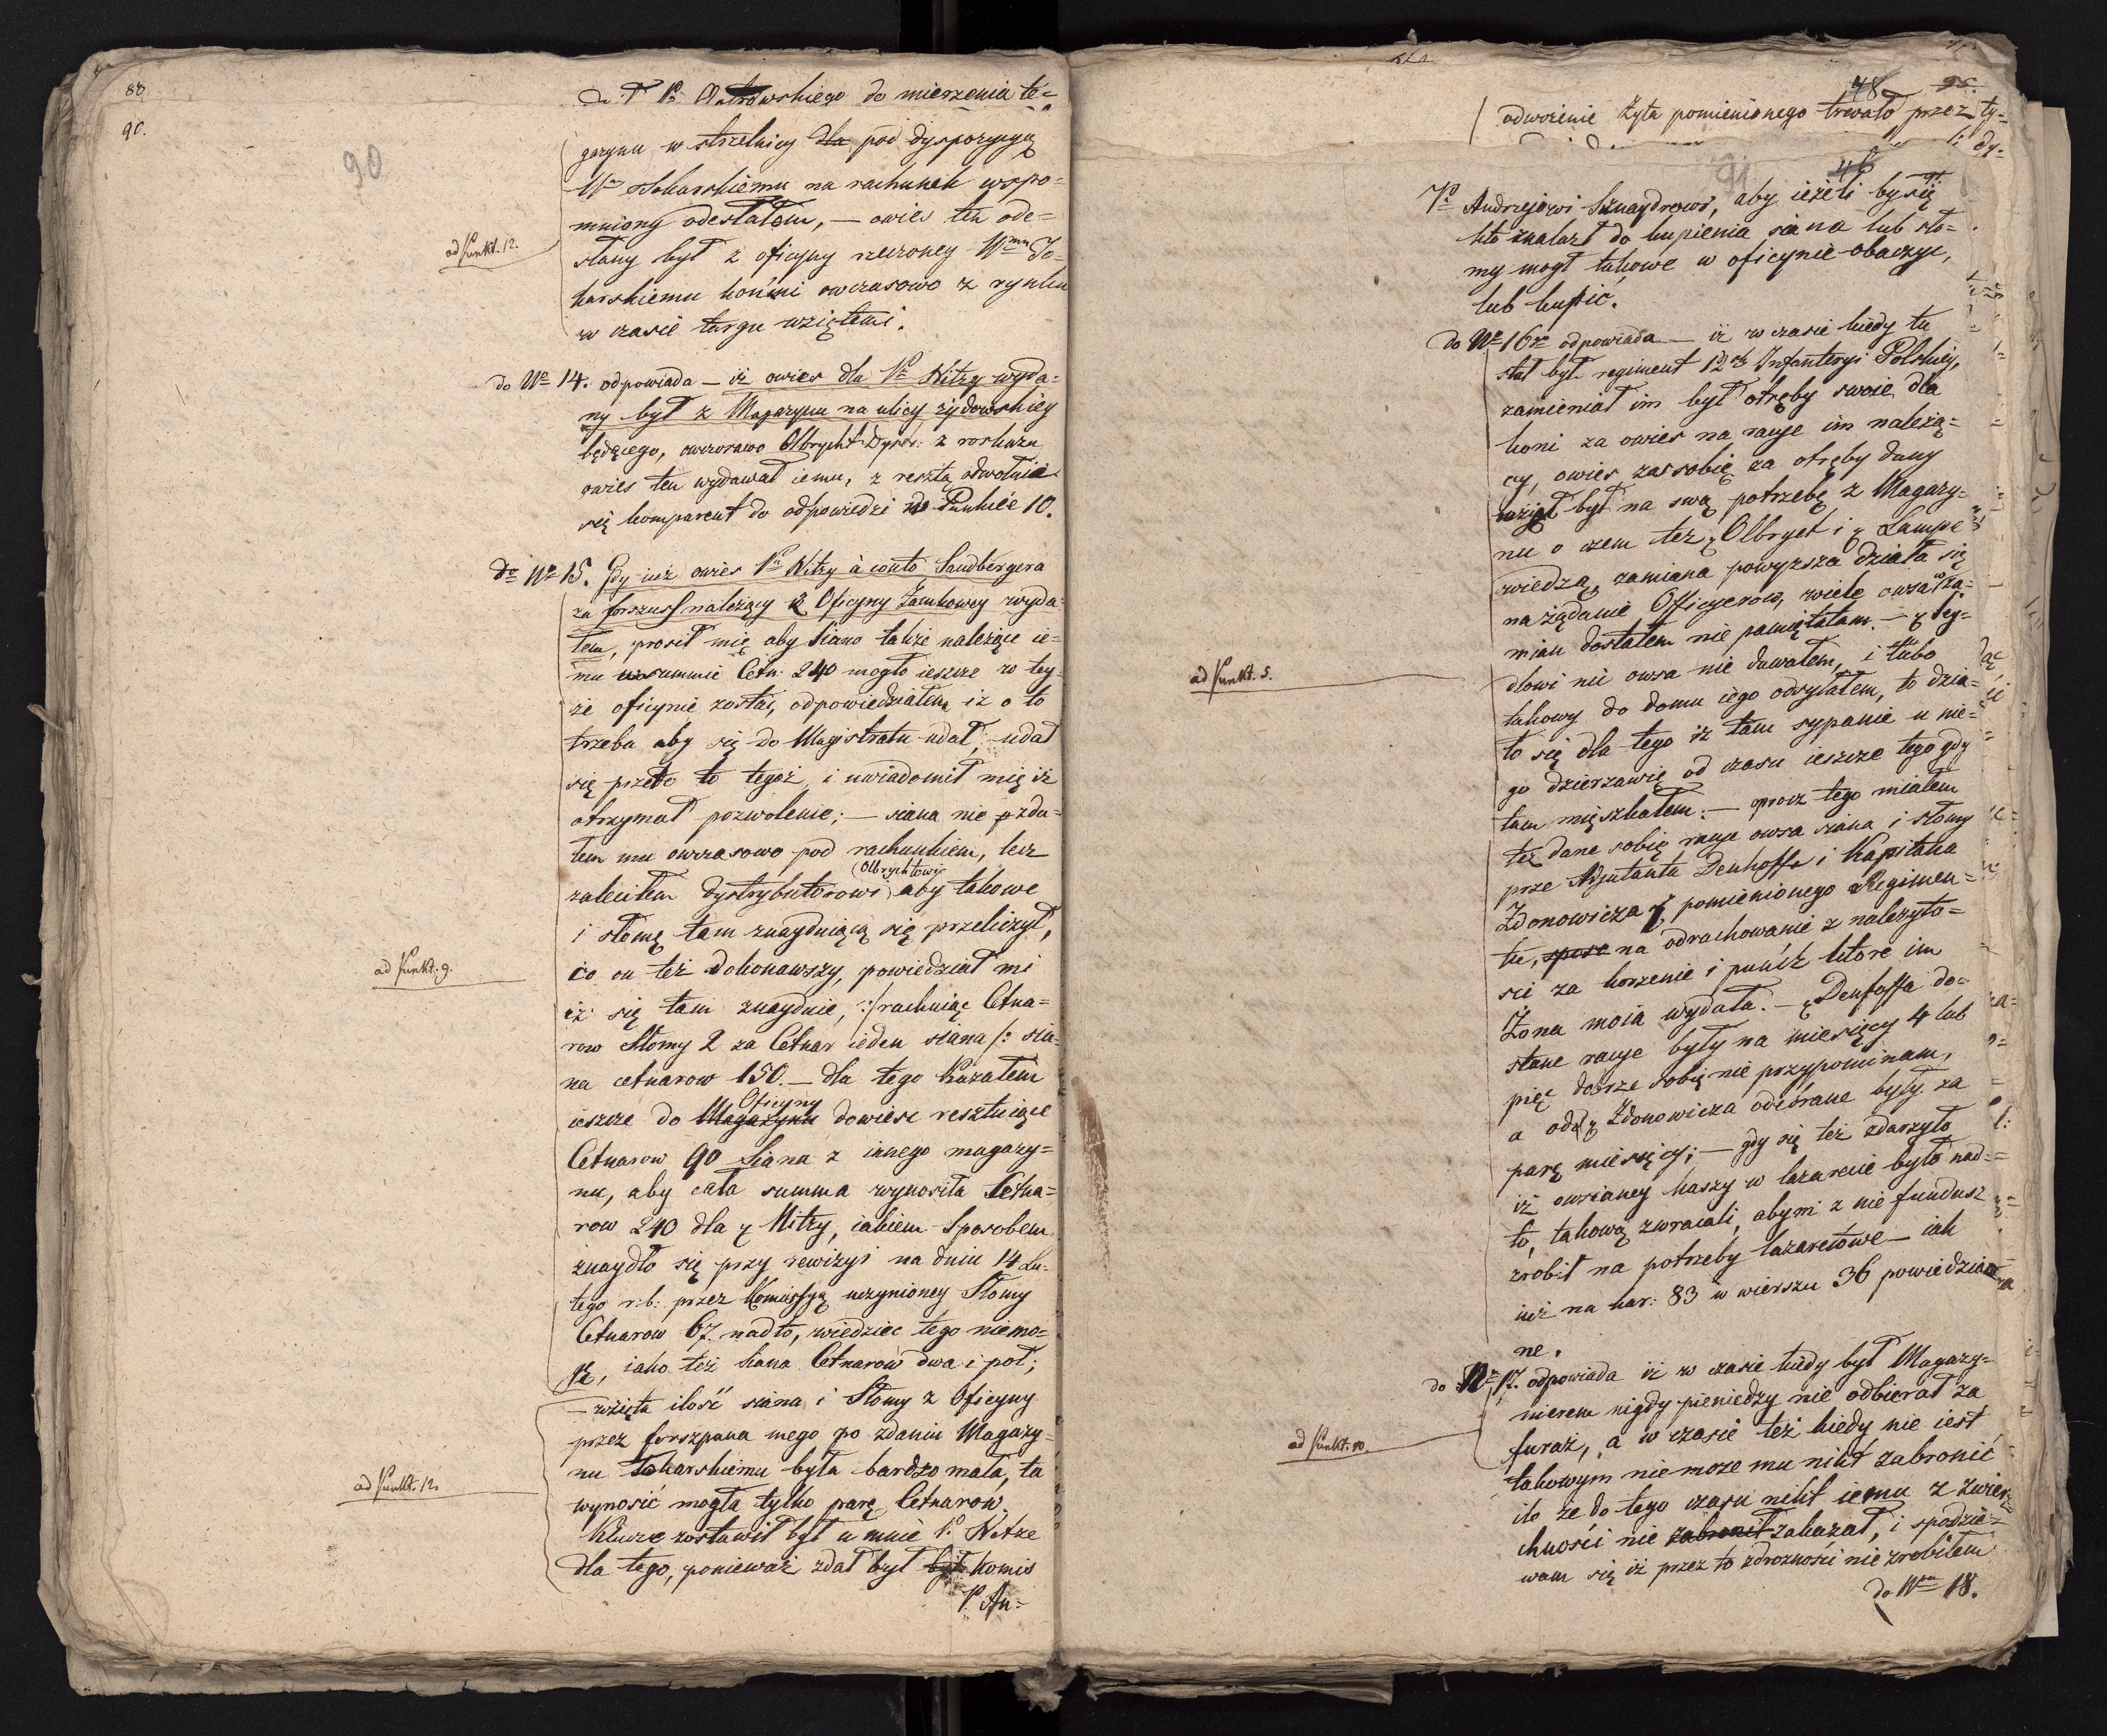 88
90.
90
P. Ostrowskiego do mierzenia te=
gazynu w strzelnicy dla pod dyspozycyą
Wmu Tokarskiemu na rachunek wspo=
mniony odesłałem, — owies ten ode=
ad Punkt. 12.
słany był z oficyny rzeczoney Wmu To=
karskiemu końmi owczasowo z rynku
w czasie targu wziętemi.
do Nro 14. odpowiada — iż owies dla Pa Nitzy wyda=
ny był z Magazynu na ulicy żydowskiey
będącego, owczasowo Olbrycht Dystr: z roskazu
owies ten wydawał iemu, z resztą odwołuie
się komparent do odpowiedzi no Punkcie 10.
do Nro 15. Gdy iuż owies Pa Nitzy à conto Sandbergera
za forszuss należący z Oficyny Zamkowey wyda=
łem, prosił mię aby Siano także należące ie=
mu w summie Cetn. 240 mogło ieszcze w tey=
że oficynie zostać, odpowiedziałem iż o to
trzeba aby się do Magistratu udał; udał
się przeto to tegoż, i uwiadomił mię iż
otrzymał pozwolenie; — siana nie zda=
łem mu owczasowo pod rachunkiem, lecz
(Olbrychtowi
zaleciłem dystrybutorowi aby takowe
i słomę tam znayduiącą się przeliczył,
ad Punkt. 9.
co on też dokonawszy, powiedział mi
iż się tam znayduie, :/rachuiąc Cetna=
row Słomy 2 za Cetnar ieden siana/: sia=
na cetnarow 150. — dla tego Kazałem
Oficyny
ieszcze do Magazynu dowiesc resztuiące
Cetnarow 90 Siana z innego magazy=
nu, aby cała summa wynosiła Cetna=
row 240 dla P. Nitzy, iakiem Sposobem
znaydło się przy rewizyi na dniu 14 Lu=
tego r: b: przez Kommissyą uczynioney Słomy
Cetnarow 67. nadto, wiedziec tego niemo=
że, iako też Siana Cetnarow dwa i pół;
— wzięta ilość siana i Słomy z Oficyny
przez forszpana mego po zdaniu Magazy=
nu Tokarskiemu była bardzo mała, ta
ad Punkt. 12.
wynosić mogła tylko parę Cetnarów.
Klucze zostawił był u mnie P. Netze
dla tego, ponieważ zdał był był komis
P. An=
48
95.
odwożenie żyta pomienionego trwało przez ty=
dy=
91
46
91.
Pu Andrzejowi Sznaydrowi, aby ieżeli by się
kto znalazł do kupienia siana lub sło=
my mogł takowe w oficynie obaczyc,
lub kupić.
do Nro 16go odpowiada — iż w czasie kiedy tu
stał był regiment 12ty Infanteryi Polskiej,
zamieniał im był otręby swoie dla
koni za owies na racye im należą=
cy, owies zas sobie za otręby dany
wziął był na swą potrzebę z Magazy=
nu o czem też P. Olbryct i P. Lampe
wiedzą, zamiana powyższa działa się
na żądanie Officyerow, wiele owsa w za=
mian dostałem nie pamiętam. — P. Sey=
ad Punkt. 5.
dlowi nic owsa nie dawałem, i lubo
takowy do domu iego odsyłałem, to dzia=
ło się dla tego iż tam sypanie u nie=
go dzierzawię od czasu ieszcze tego gdy
tam mięszkałem: — oprocz tego miałem
też dane sobie racye owsa siana i słomy
prze Adjutanta Denhoffa i Kapitana
Zdonowicza, pomienionego Regimen=
tu, na odrachowanie z należyto=
sci za korzenie i puncz które im
Żona moia wydała. — P. Denhoffa do=
stane racye były na miesięcy 4 lub
pięc dobrze sobie nie przypominam,
a od P. Zdonowicza odebrane były za
parę miesięcy; — gdy się też zdarzyło
iż owsianey kaszy w lazarecie było nad=
to, takową zwracali, abym z nie fundusz
zrobił na potrzeby lazaretowe — iak
iuż na kar: 83 w wierszu 36 powiedzia
ne.
do Nro 17. odpowiada iż w czasie kiedy był Magazy=
nierem nigdy pieniedzy nie odbierał za
ad Punkt. 10.
furaż, a w czasie też kiedy nie iest
takowym niemoze mu nikt zabronić
ile że do tego czasu nikt iemu z zwierz=
chności nie zabronił zakazał, i spodzie=
wam się iż przez to zdrożności nie zrobiłem
do Nru 18.